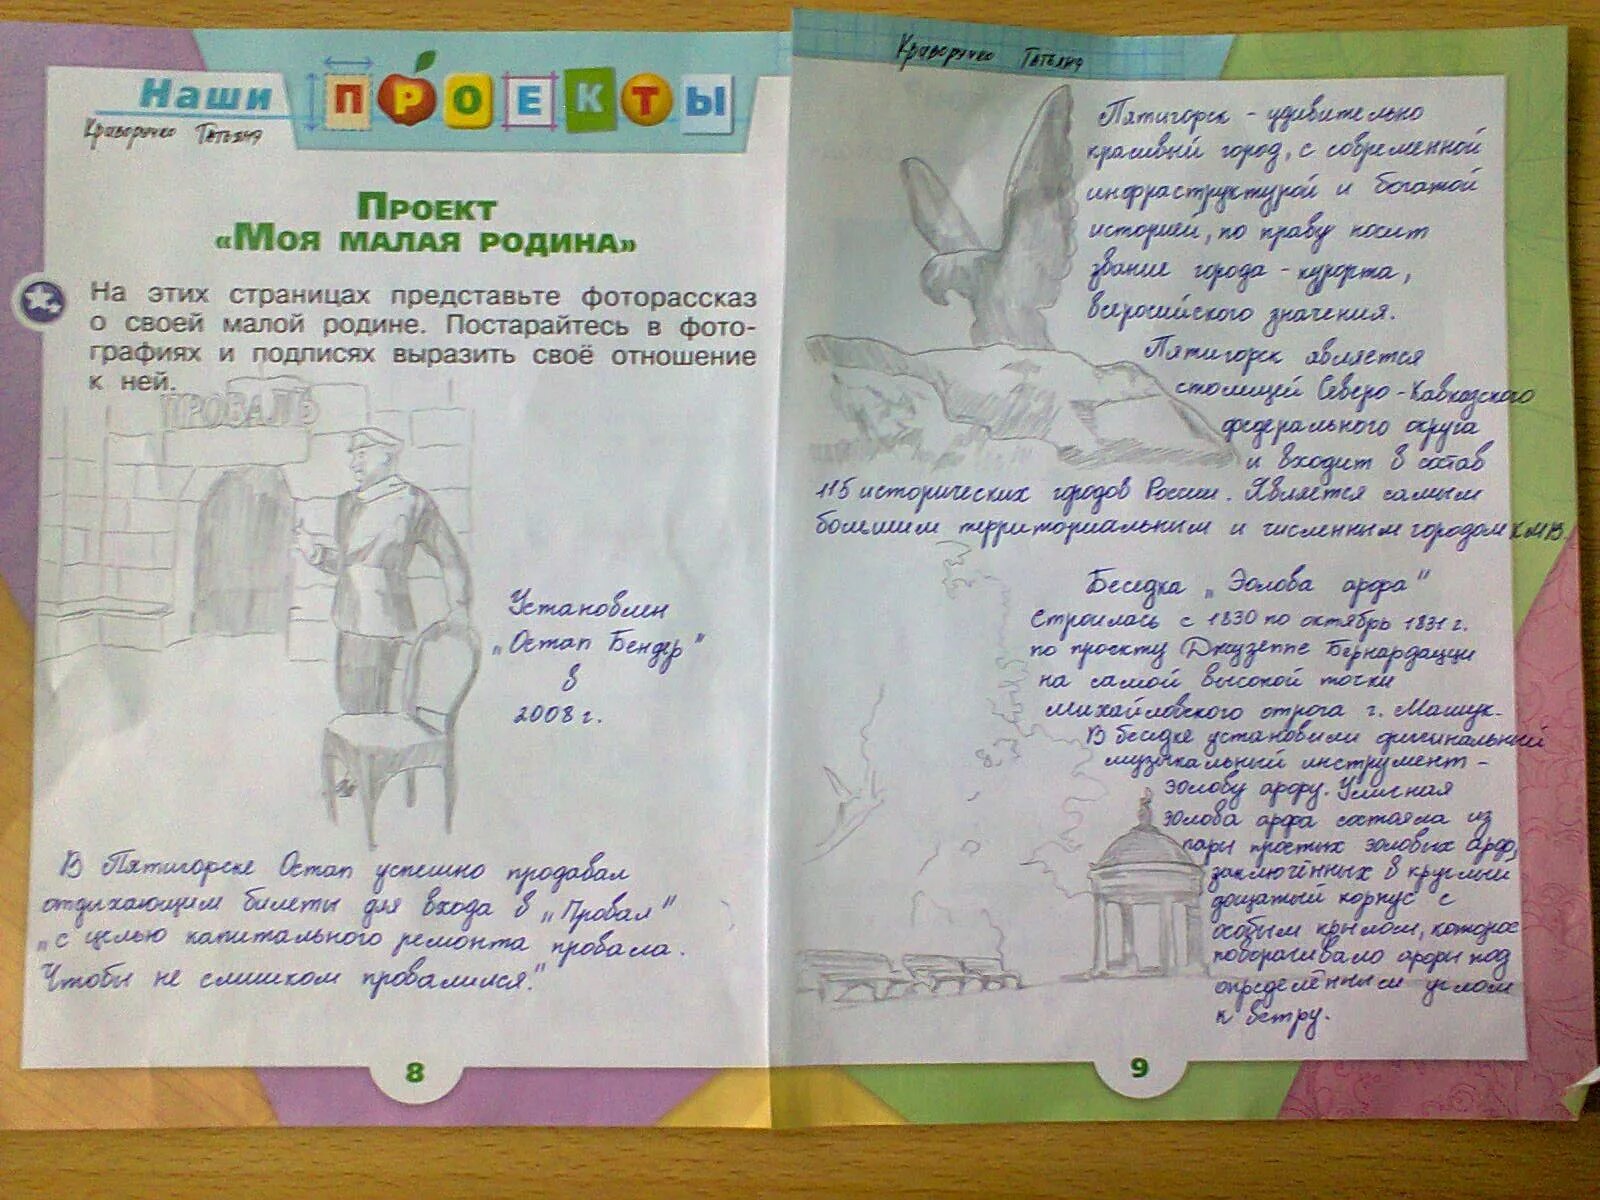 Наши ПРОЕКТЫ
Криворучко Татьяна
ПРОЕКТ
«МОЯ МАЛАЯ РОДИНА»
На этих страницах представьте фоторассказ
о своей малой родине. Постарайтесь в фото-
графиях и подписях выразить своё отношение
к ней.
ПРОВАЛЪ
Установлен
„Остап Бендер"
в
2008 г.
В Пятигорске Остап успешно продавал
отдыхающим билеты для входа в „Провал"
„с целью капитального ремонта провала.
Чтобы не слишком провалился."
8
Криворучко Татьяна
Пятигорск - удивительно
красивый город, с современной
инфраструктурой и богатой
историей, по праву носит
звание города - курорта,
всеросийского значения.
Пятигорск является
столицей Северо-Кавказского
федерального округа
и входит в состав
115 исторических городов России. Является самым
большим территориальным и численным городом КМВ.
Беседка „Эолова арфа"
Строилась с 1830 по октябрь 1831 г.
по проекту Джузеппе Бернардацци
на самой высокой точки
Михайловского отрога г. Машук.
В беседке установили
музыкальный инструмент -
эолову арфу.
эолова арфа состояла из
пары простых эоловых арф,
заключённых в круглый
дощатый корпус с
особым крылом, которое
поворачивало арфы под
определённым углом
к ветру.
9